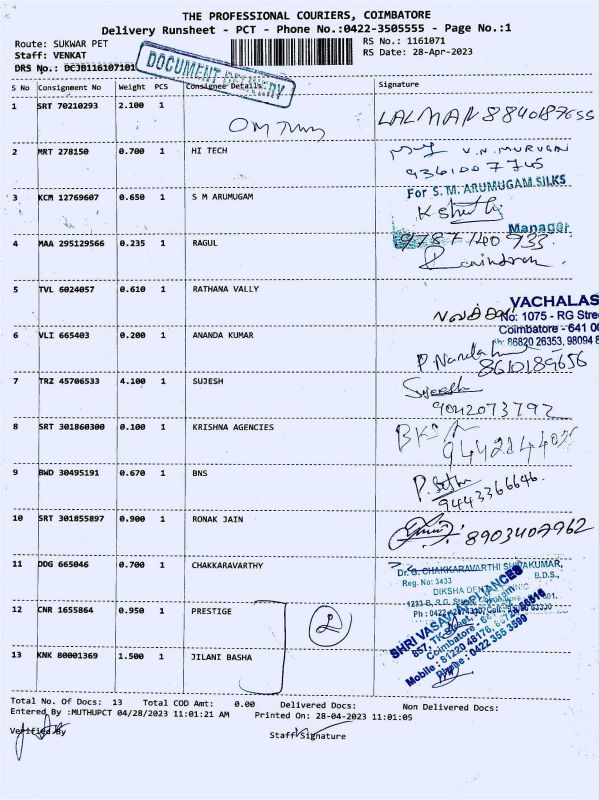 THE PROFESSIONAL COURIERS, COIMBATORE
Delivery Runsheet - PCT - Phone No.:0422-3505555 - Page No.:1
Route: SUKWAR PET
RS No.: 1161071
Staff: VENKAT
RS Date: 28-Apr-2023
DRS No.: DEJB116107101
DOCUMENT DELIVERY
S No Consignment No Weight PCS Consignee Details Signature
1 SRT 70210293 2.100 1
LALMAN 8840187655
2 MRT 278150 0.700 1 HI TECH
V.N. MURUGAN
9361007745
3 KCM 12769607 0.650 1 S M ARUMUGAM
For S. M. ARUMUGAM SILKS
Manager
4 MAA 295129566 0.235 1 RAGUL
9787140 933
5 TVL 6024057 0.610 1 RATHANA VALLY
VACHALAS
No: 1075 - RG Stre
Coimbatore - 641 00
Ph: 86820 26353, 98094 8
6 VLI 665403 0.200 1 ANANDA KUMAR
8610189656
7 TRZ 45706533 4.100 1 SUJESH
Sujeesh
9042073792
8 SRT 301860300 0.100 1 KRISHNA AGENCIES
9 BWD 30495191 0.670 1 BNS
9443366646
10 SRT 301855897 0.900 1 RONAK JAIN
8903407962
11 DDG 665046 0.700 1 CHAKKARAVARTHY
Dr. G. CHAKKARAVARTHI SHIVAKUMAR,
B.D.S.,
Reg. No: 3433
DIKSHA
12 CNR 1655864 0.950 1 PRESTIGE
2
SHRI VASAVI APPLIANCES
Coimbatore
Phone : 0422 355 3599
13 KNK 80001369 1.500 1 JILANI BASHA
Total No. Of Docs: 13 Total COD Amt: 0.00 Delivered Docs: Non Delivered Docs:
Entered By :MUTHUPCT 04/28/2023 11:01:21 AM Printed On: 28-04-2023 11:01:05
Verified By
Staff Signature